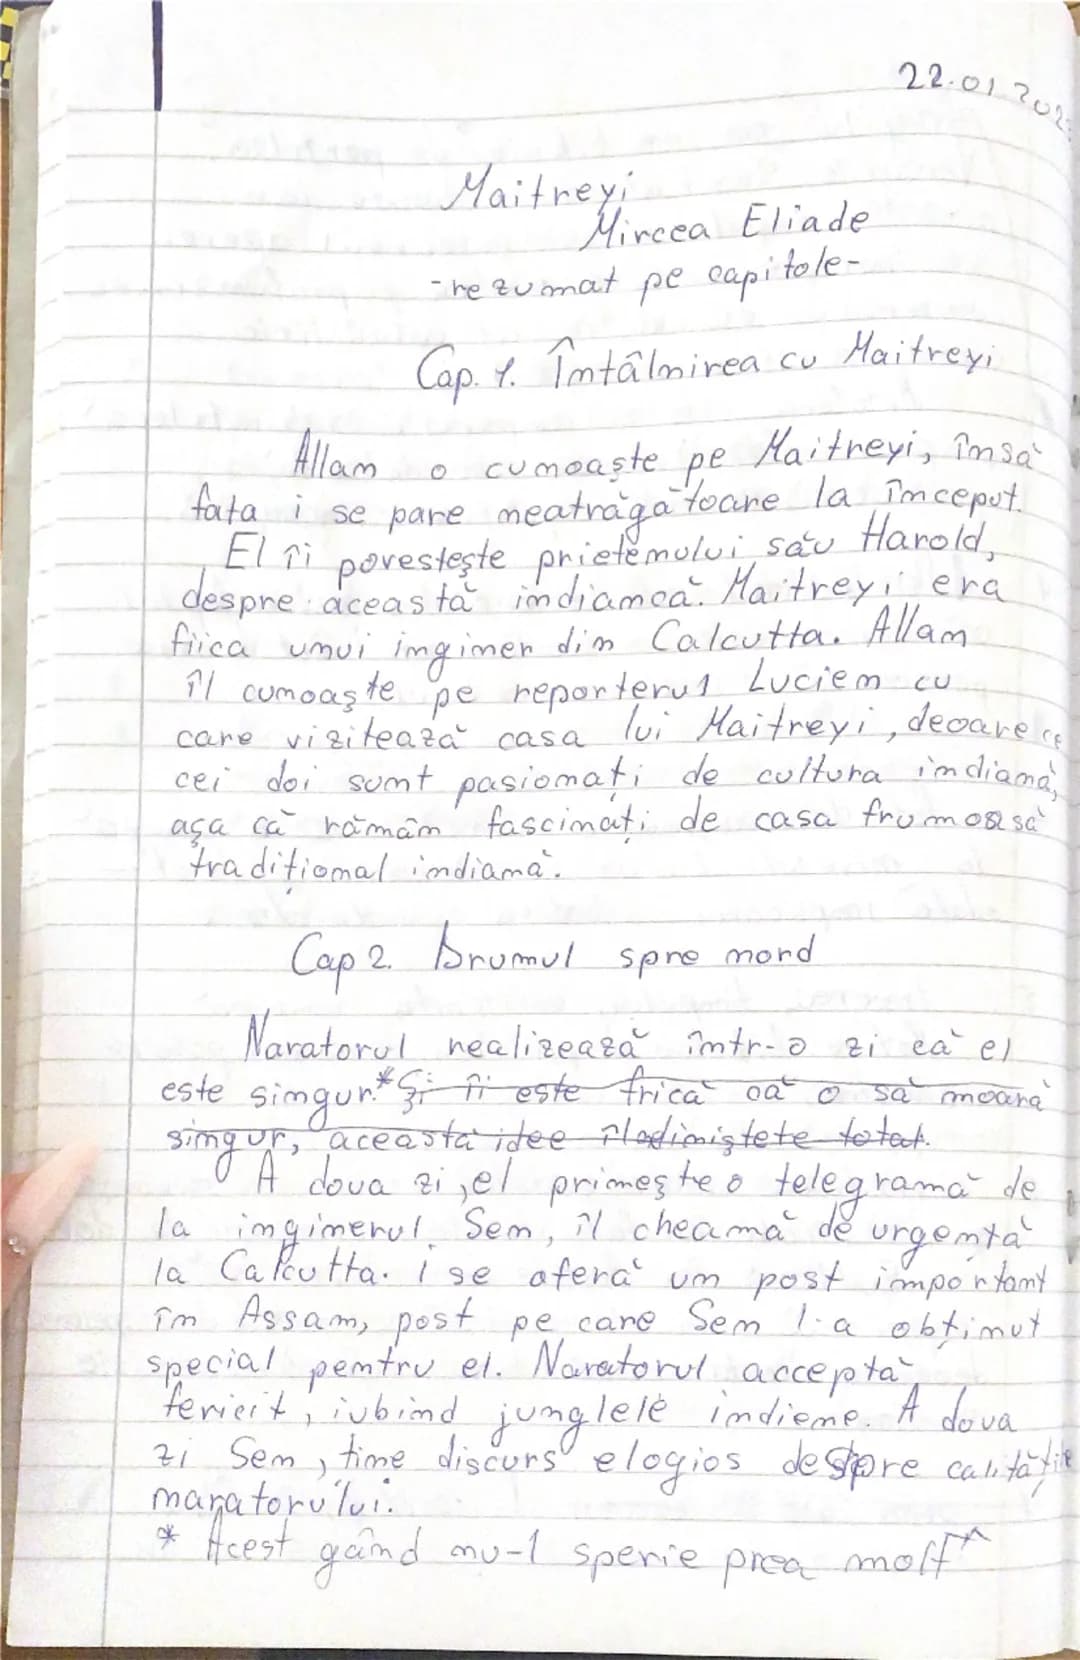 22.01 202
Maitreyi
Mircea Eliade
-rezumat pe capitole-
Cap. 1. Întâlnirea cu Maitreyi
Allan o cunoaște pe Maitreyi, însă
fata i se pare neatrăgătoare la început.
El îi povestește prietenului său Harold,
despre această indiancă. Maitreyi era
fiica unui inginer din Calcutta. Allan
îl cunoaște pe reporterul Lucien cu
care vizitează casa lui Maitreyi, deoare ce
cei doi sunt pasionați de cultura indiană,
așa că rămân fascinați de casa frumoasă
tradițional indiană.
Cap 2. Drumul spre nord
Naratorul realizează într-o zi că el
este singur.* Și îi este frică că o să moară
singur, aceasta idee totat.
A doua zi, el primește o telegramă de
la inginerul Sem, îl cheamă de urgență
la Calcutta. i se oferă un post important
în Assam, post pe care Sem l-a obținut
special pentru el. Naratorul acceptă
fericit, iubind junglele indiene. A doua
zi Sem, tine discurs elogios despre calitățile
naratorului.
* Acest gând nu-l sperie prea molt *